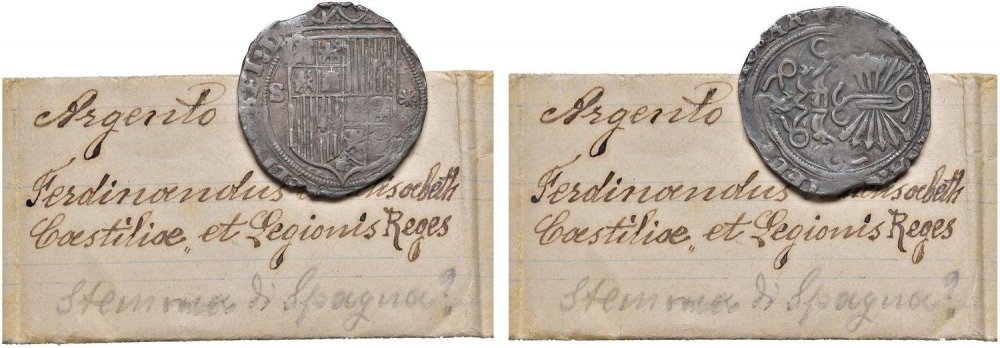 S
Argento
Ferdinandus
Castiliæ, et Legionis Reges
Stemma di Spagna?
Argento
Ferdinandus
Castiliæ, et Legionis Reges
Stemma di Spagna?